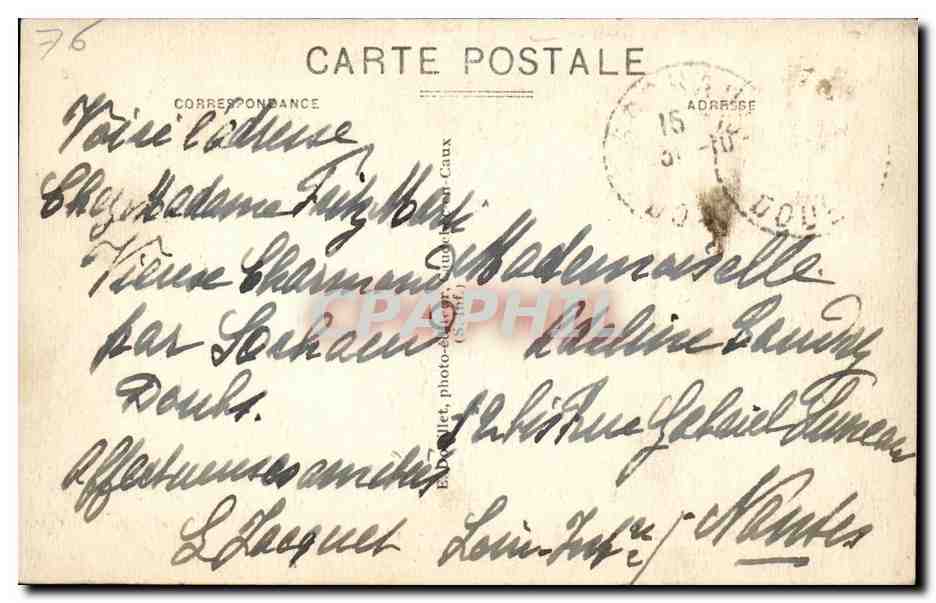 76
CARTE POSTALE
CORRESPONDANCE
ADRESSE
Voici l'adresse
Chez Madame Fritz
Vieux Charmont
par Sochaux
Doubs.
affectueuses amitiés
L Jacquet
E. Dou llet, photo-éditeur, uque en-Caux
(S.-Inf.)
15
31 -10
DOUBS
Mademoiselle
Pauline Landry
12 bis rue Gabriel
Loire-Infre
Nantes
CPAPHIL